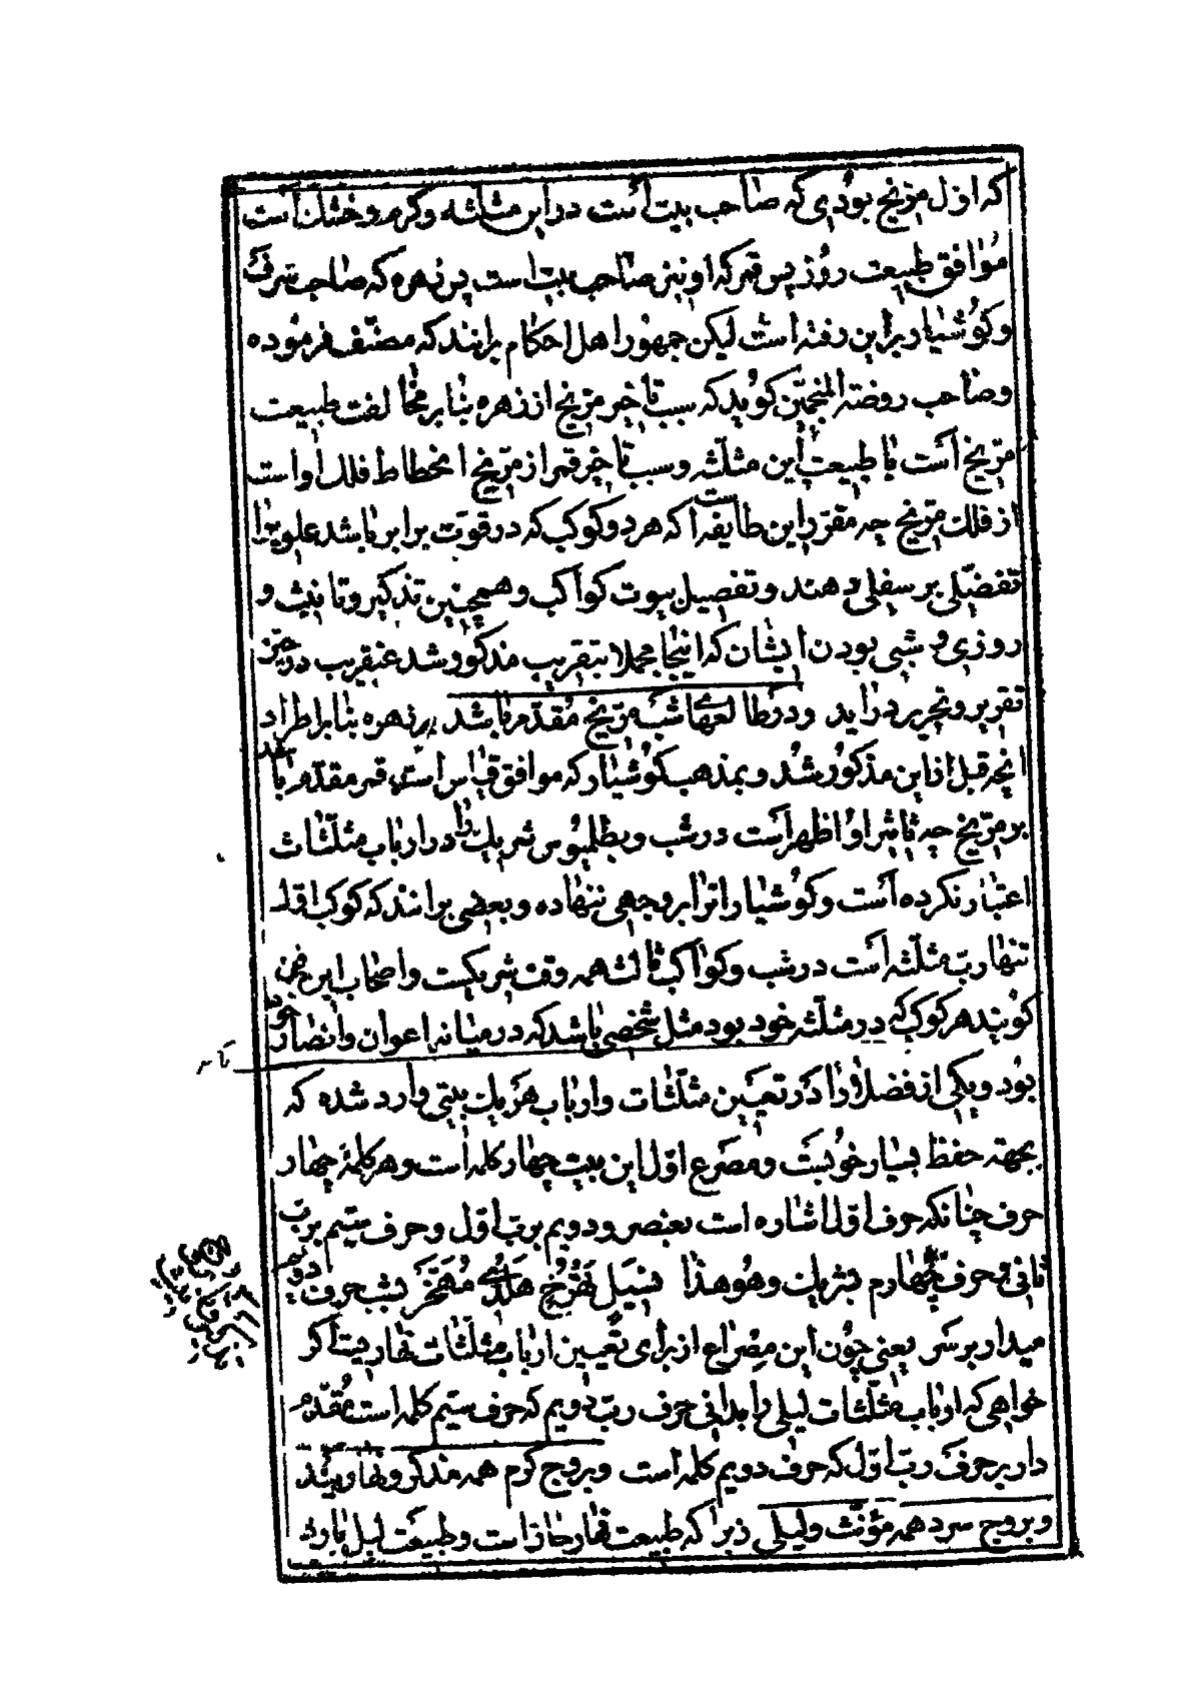 که اول مریخ بودی که صاحب بیت است در این مثلثه و گرم و خشک است
موافق طبیعت روز پس قمر که او نیز صاحب بیت است پس زهره که صاحب شرف
و کوشیار بر این رفته است لیکن جمهور اهل احکام برانند که مصنف فرموده
و صاحب روضة المنجمین گوید که سبب تاخیر مریخ از زهره بنا بر مخالفت طبیعت
مریخ است با طبیعت این مثلثه و سبب تاخیر قمر از مریخ انحطاط فلک او است
از فلک مریخ چه مقرر این طایفه است که هر دو کوکب که در قوت برابر باشد علوی را
تفضیل بر سفلی دهند و تفصیل بیوت کواکب و همچنین تذکیر و تانیث و
روزی و شبی بودن ایشان که اینجا مجملا بتقریب مذکور شد عنقریب در حیز
تقریر و تحریر در آید و در طالعهای شب مریخ مقدم باشد بر زهره بنا بر اطراد
انچه قبل از این مذکور شد و بمذهب کوشیار که موافق قیاس است قمر مقدم باشد
بر مریخ چه تاثیر او اظهر است در شب و بطلمیوس شریک را در ارباب مثلثات
اعتبار نکرده است و کوشیار انرا بر وجهی ننهاده و بعضی برانند که کوکب اول
تنها رب مثلثه است در شب و کواکب ثالث همه وقت شریکست و اصحاب این فن
گویند هر کوکب که در مثلثه خود بود مثل شخصی باشد که در میانه اعوان و انصار خود
بود و یکی از فضلا را در تعیین مثلثات و ارباب هر یک بیتی وارد شده که
بجهة حفظ بسیار خوبست و مصرع اول این بیت چهار کلمه است و هر کلمه چهار
حرف چنانکه حرف اول اشاره است بعنصر و دویم برب اول و حرف سیم برب
ثانی و حرف چهارم بشریک و هو هذا بسیل نهرخ هلدی مهخر بشب حرف دویم
میدار بر سر یعنی چون این مصراع از برای تعیین ارباب مثلثات نهاریست اگر
خواهی که ارباب مثلثات لیلی را بدانی حرف رب دویم که حرف سیم کلمه است مقدم
دار بر حرف رب اول که حرف دویم کلمه است و بروج گرم همه مذکر و نهاریند
و بروج سرد همه مؤنث و لیلی زیرا که طبیعت نهار حار است و طبیعت لیل بارد